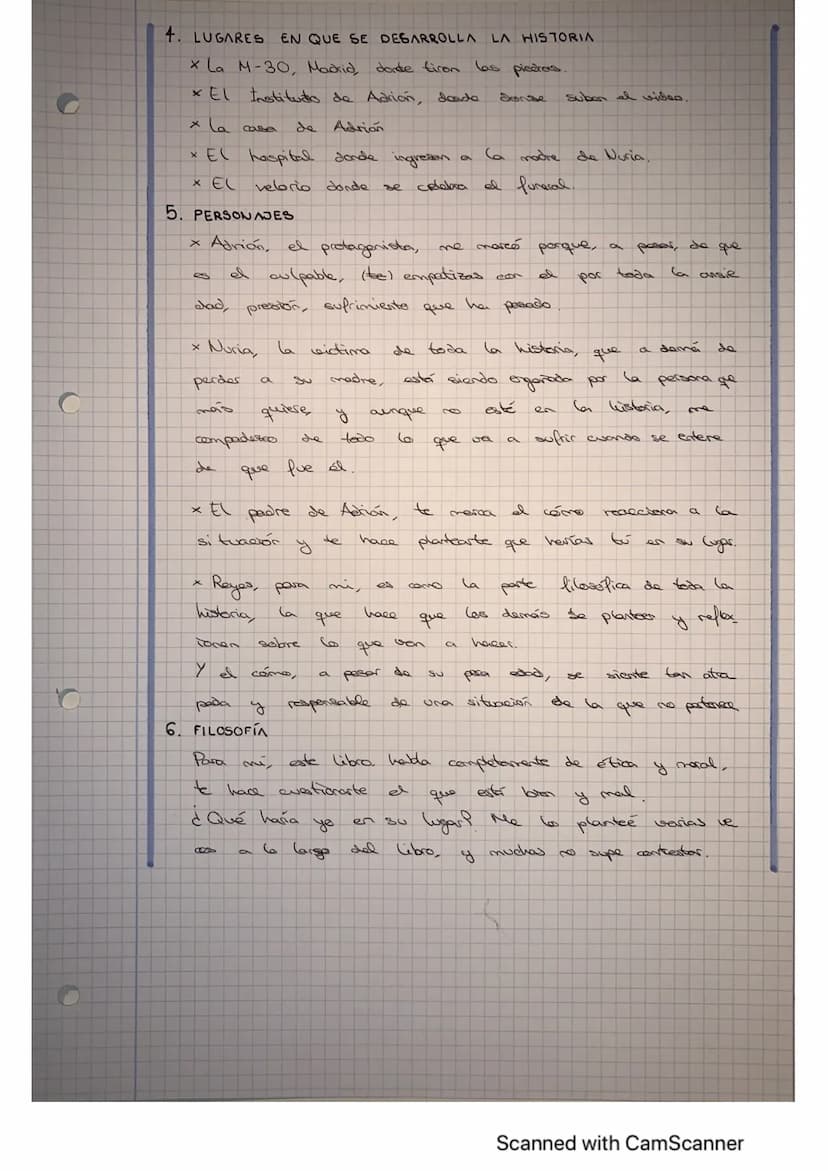 4. LUGARES EN QUE SE DESARROLLA LA HISTORIA
x La M-30, Madrid, donde tiran las piedras.
x El Instituto de Adrián, donde suben el video.
x La casa de Adrián
x El hospital donde ingresan a la madre de Nuria.
x El velorio donde se celebra el funeral.
5. PERSONAJES
x Adrián, el protagonista, me marcó porque, a pesar, de que
es el culpable, (te) empatizas con él por toda la ansie
dad, presión, sufrimiento que ha pasado.
x Nuria, la victima de toda la historia, que a demá de
perder a su madre, está siendo engañada por la persona que
más quiere, y aunque no esté en la historia, me
compadezco de todo lo que va a sufrir cuando se entere
de que fue él.
x El padre de Adrián, te marca el cómo reacciona a la
situación y te hace plantearte que harías tú en su lugar.
x Reyes, para mi, es como la parte filosófica de toda la
historia, la que hace que los demás se planteen y reflex
ionen sobre lo que van a hacer.
Y el cómo, a pesar de su poca edad, se siente tan atra
pada y responsable de una situación de la que no pertenece
6. FILOSOFÍA
Para mi, este libro habla completamente de ética y moral,
te hace cuestionarte el que está bien y mal.
¿Qué haría yo en su lugar? Me lo planteé varias ve
ces a lo largo del libro, y muchas no supe contestar.
Scanned with CamScanner